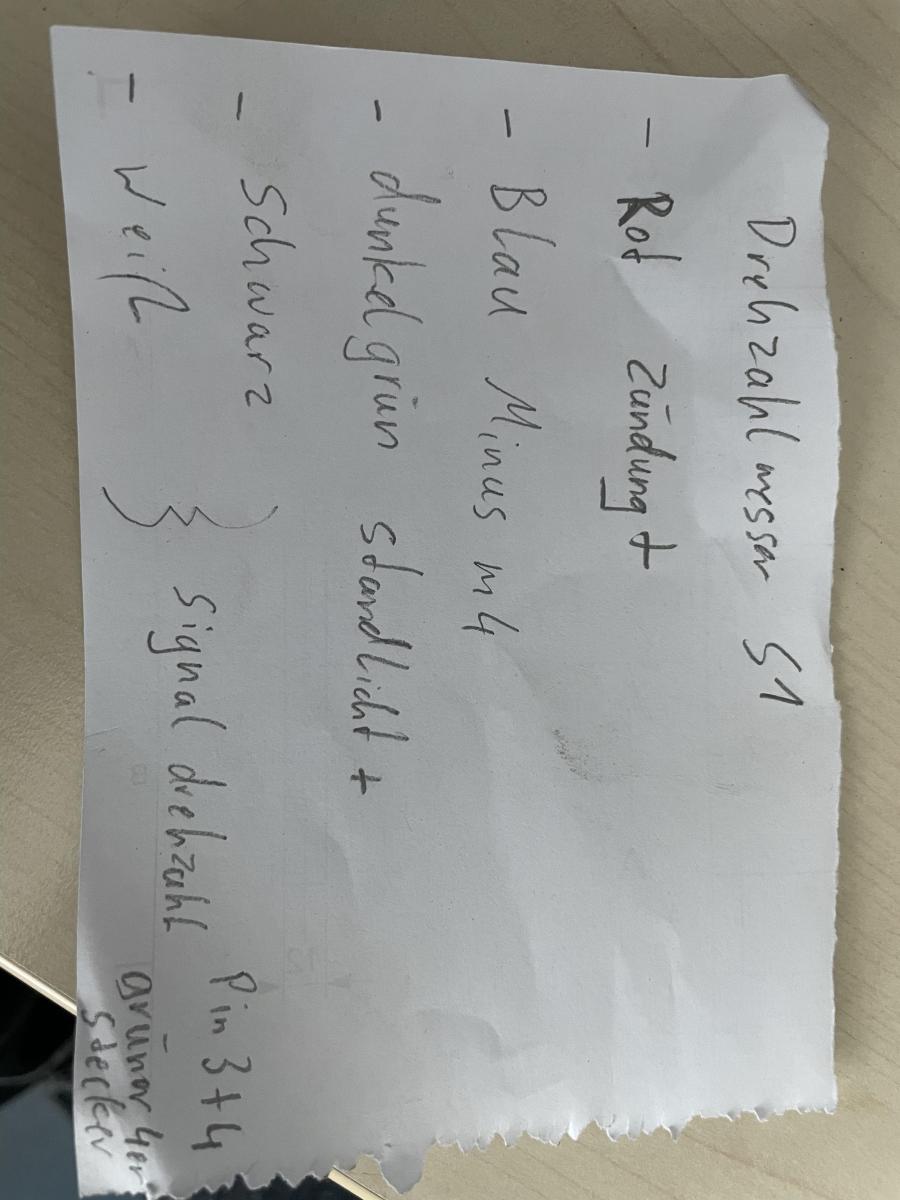 Drehzahlmesser S1
- Rot Zündung +
- Blau Minus m4
- dunkelgrün standlicht +
- Schwarz
- Weiß
} Signal drehzahl Pin 3+4
grüner 4er
Stecker